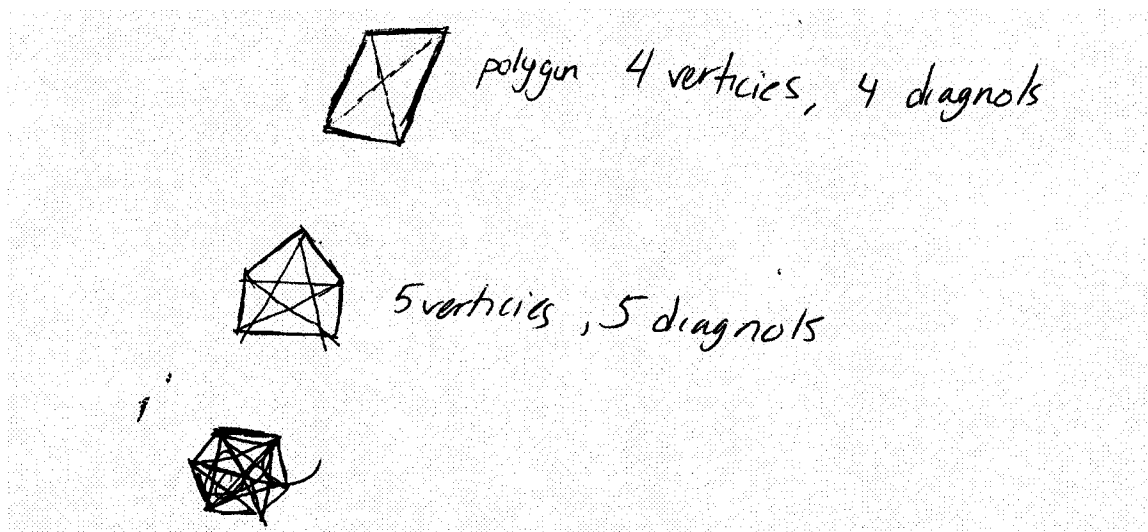 polygun 4 verticies, 4 diagnols
5 verticies, 5 diagnols